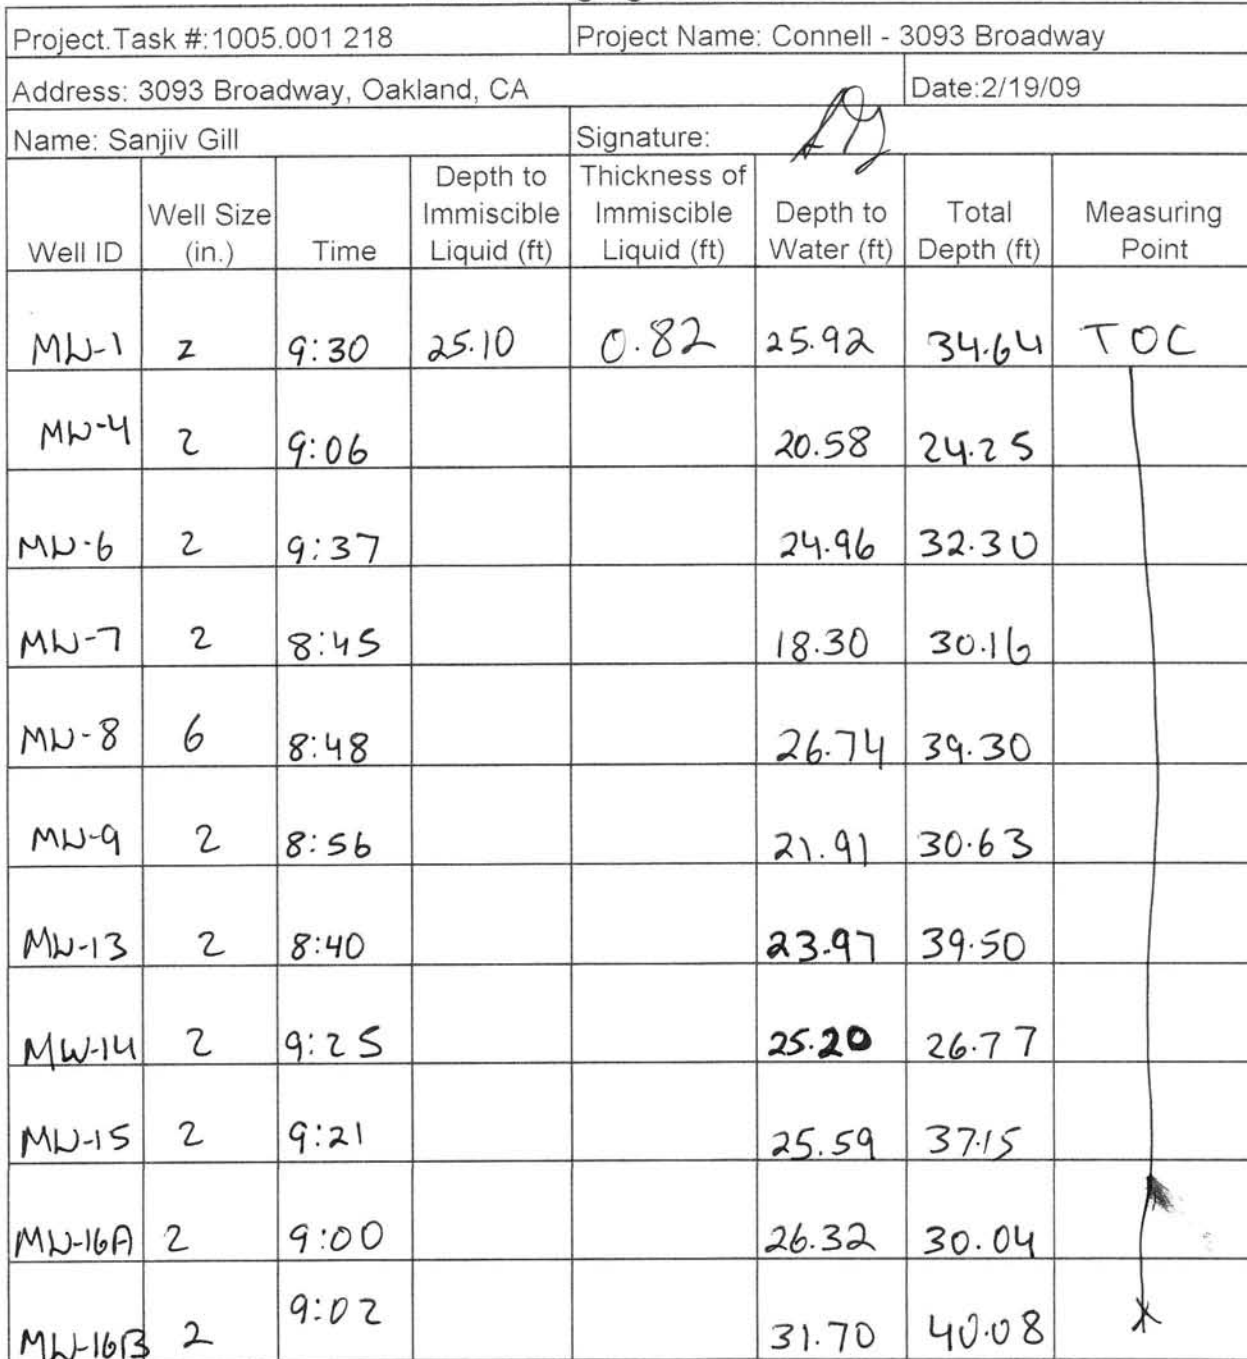 Project.Task #:1005.001 218 Project Name: Connell - 3093 Broadway
Address: 3093 Broadway, Oakland, CA Date:2/19/09
Name: Sanjiv Gill Signature:
Well ID Well Size (in.) Time Depth to Immiscible Liquid (ft) Thickness of Immiscible Liquid (ft) Depth to Water (ft) Total Depth (ft) Measuring Point
MW-1 2 9:30 25.10 0.82 25.92 34.64 TOC
MW-4 2 9:06 20.58 24.25
MW-6 2 9:37 24.96 32.30
MW-7 2 8:45 18.30 30.16
MW-8 6 8:48 26.74 39.30
MW-9 2 8:56 21.91 30.63
MW-13 2 8:40 23.97 39.50
MW-14 2 9:25 25.20 26.77
MW-15 2 9:21 25.59 37.15
MW-16A 2 9:00 26.32 30.04
MW-16B 2 9:02 31.70 40.08